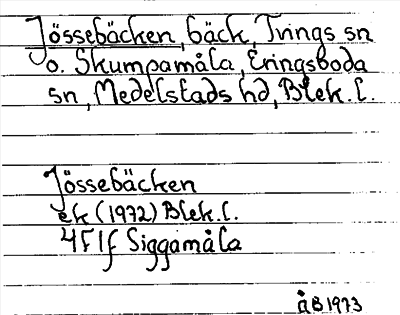 Jössebäcken, bäck, Tvings sn
o. Skumpamåla, Eringsboda
sn, Medelstads hd, Blek. l.
Jössebäcken
ek (1972) Blek. l.
4F1f Siggamåla
ÅB 1973